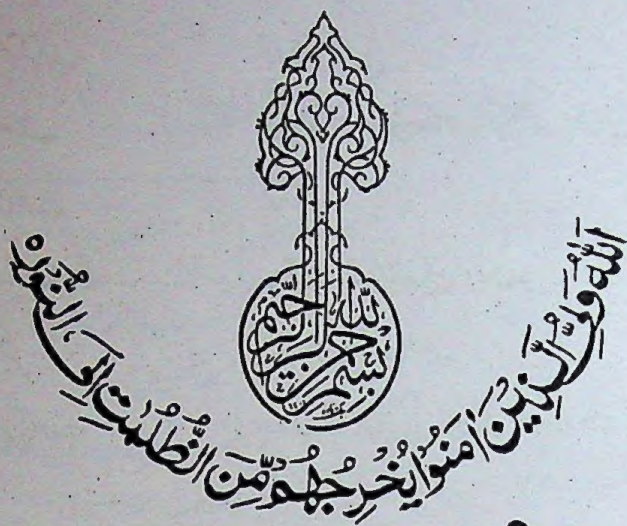 بسم الله الرحمن الرحيم
اَللّٰهُ وَلِیُّ الَّذِیْنَ اٰمَنُوْا یُخْرِجُهُمْ مِّنَ الظُّلُمٰتِ اِلَی النُّوْرِ